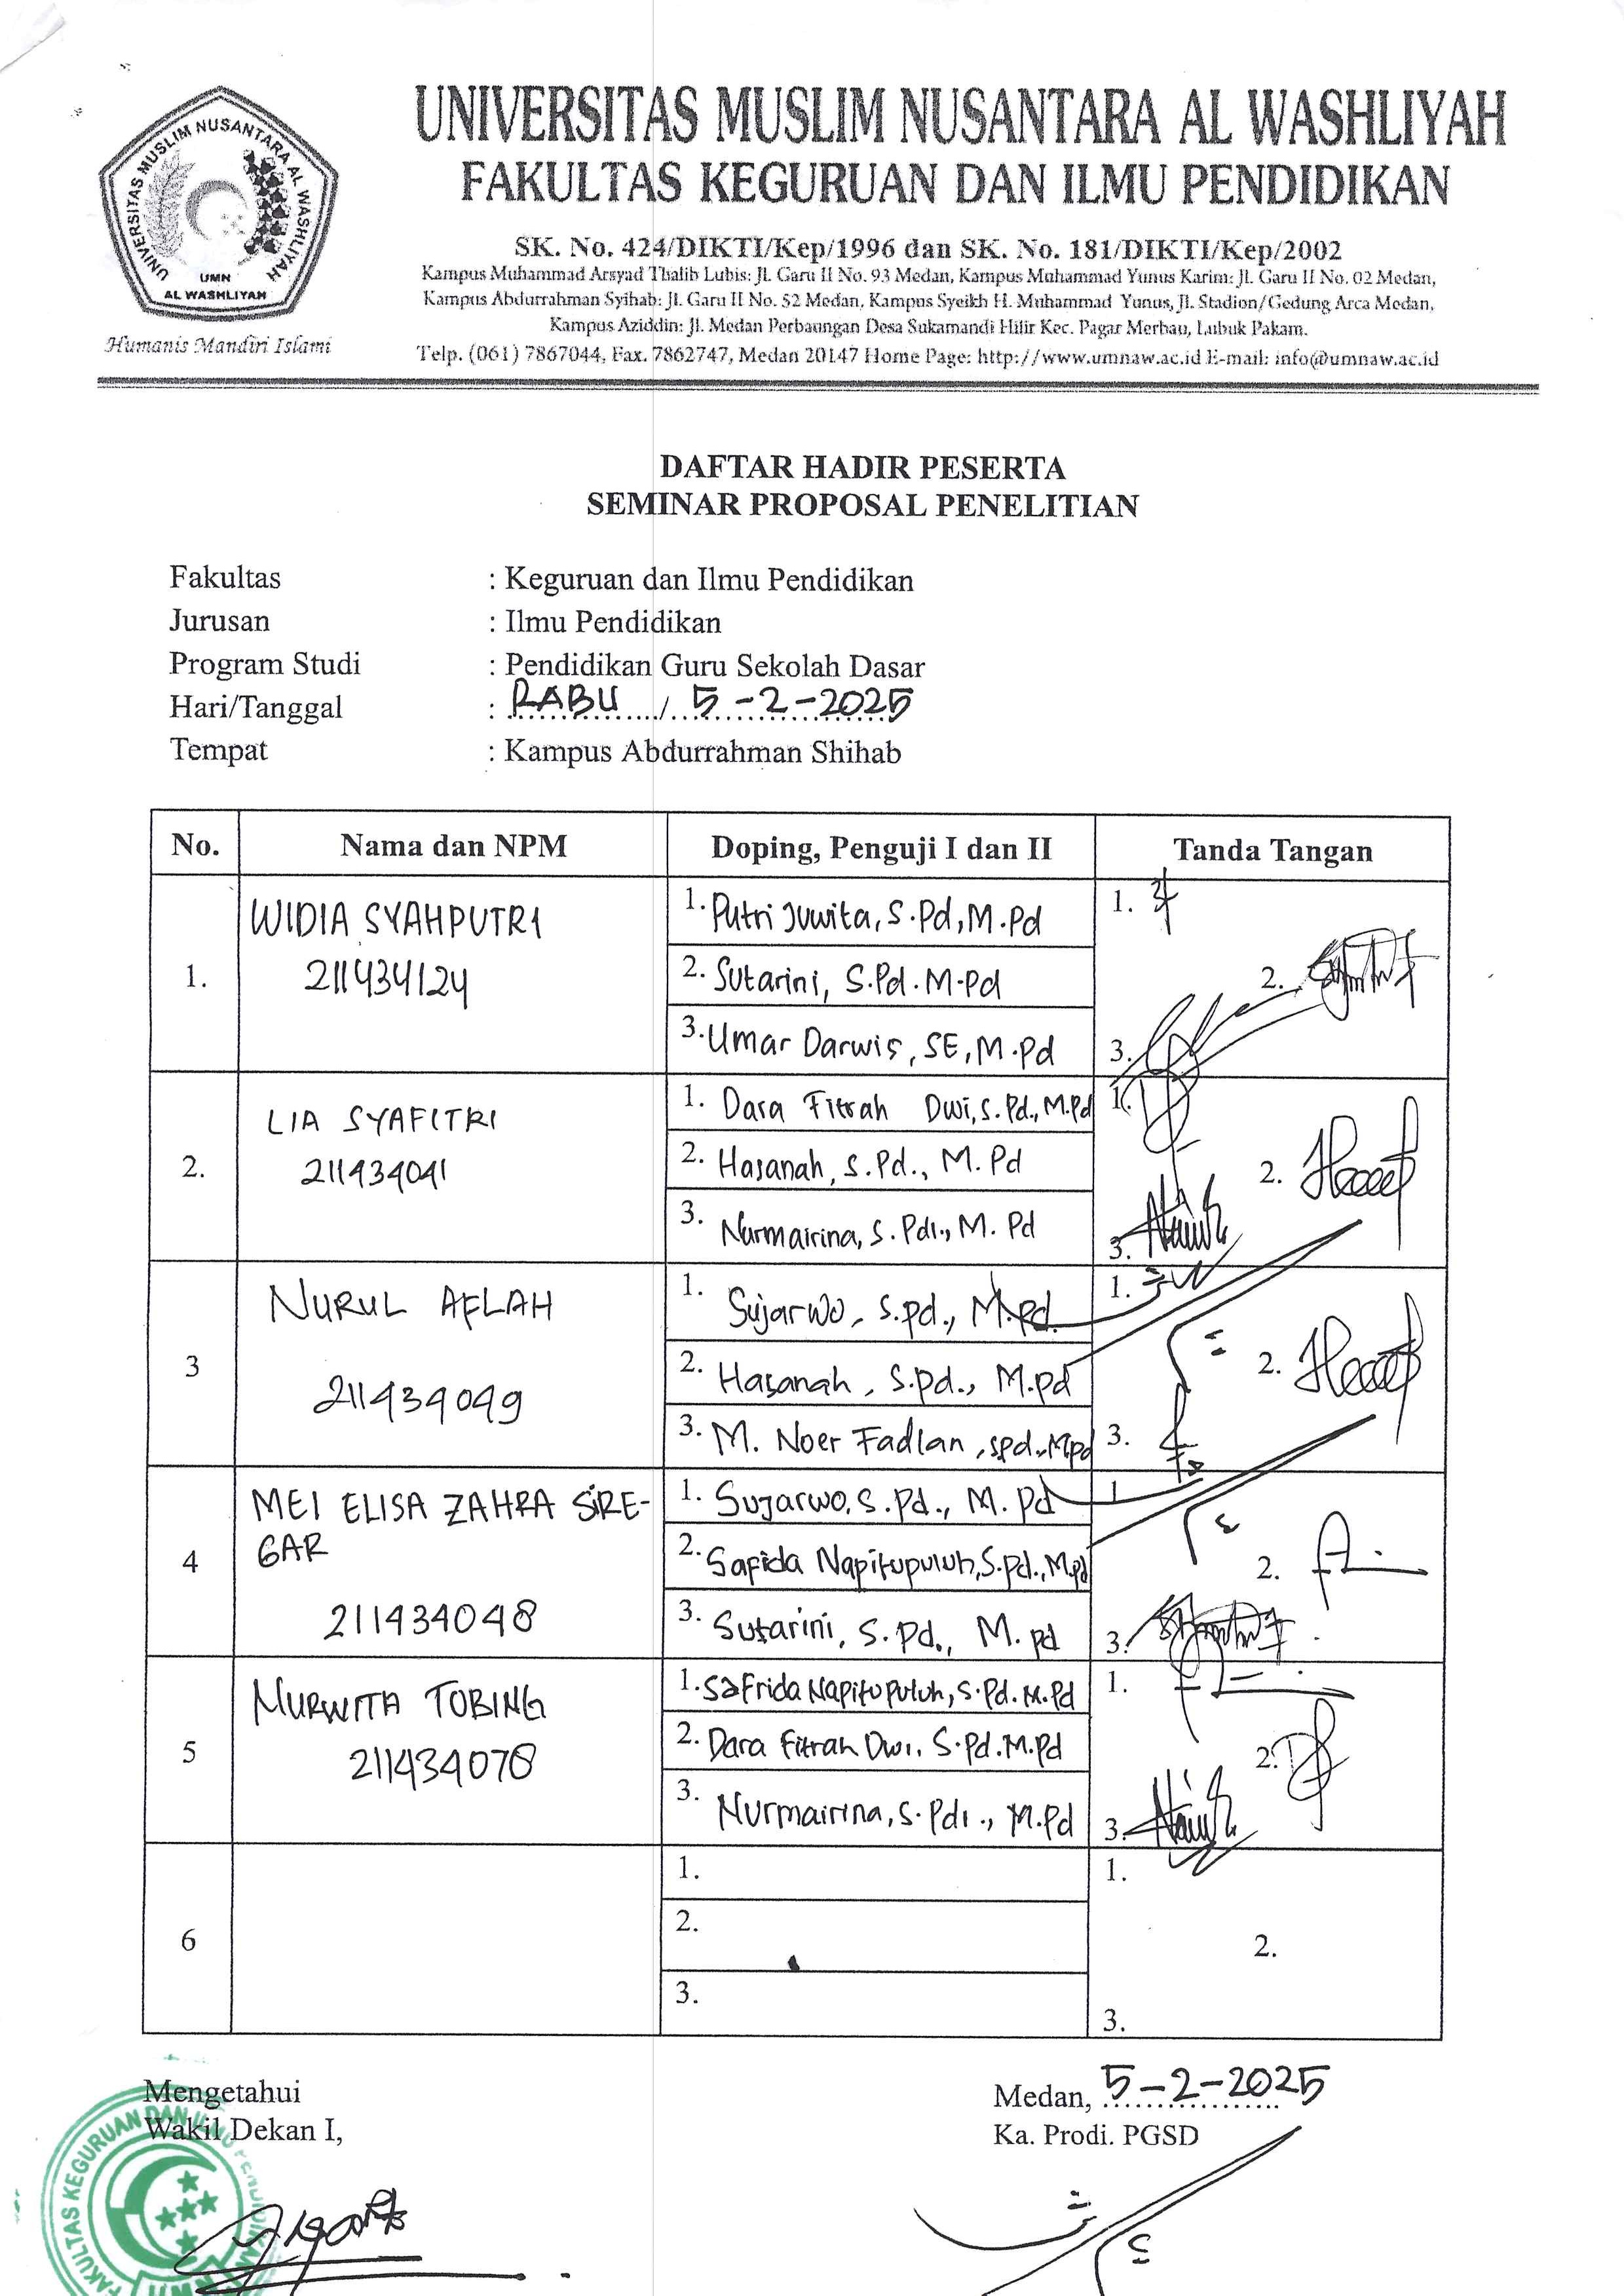 UNIVERSITAS MUSLIM NUSANTARA AL WASHLIYAH
UMN
AL WASHLIYAH
Humanis Mandiri Islami
UNIVERSITAS MUSLIM NUSANTARA AL WASHLIYAH
FAKULTAS KEGURUAN DAN ILMU PENDIDIKAN
SK. No. 424/DIKTI/Kep/1996 dan SK. No. 181/DIKTI/Kep/2002
Kampus Muhammad Arsyad Thalib Lubis: Jl. Garu II No. 93 Medan, Kampus Muhammad Yunus Karim: Jl. Garu II No. 02 Medan,
Kampus Abdurrahman Syihab: Jl. Garu II No. 52 Medan, Kampus Syeikh H. Muhammad Yunus, Jl. Stadion/Gedung Arca Medan,
Kampus Aziddin: Jl. Medan Perbaungan Desa Sukamandi Hilir Kec. Pagar Merbau, Lubuk Pakam.
Telp. (061) 7867044, Fax. 7862747, Medan 20147 Home Page: http://www.umnaw.ac.id E-mail: info@umnaw.ac.id
DAFTAR HADIR PESERTA
SEMINAR PROPOSAL PENELITIAN
Fakultas : Keguruan dan Ilmu Pendidikan
Jurusan : Ilmu Pendidikan
Program Studi : Pendidikan Guru Sekolah Dasar
Hari/Tanggal : RABU / 5-2-2025
Tempat : Kampus Abdurrahman Shihab
No. Nama dan NPM Doping, Penguji I dan II Tanda Tangan
1. WIDIA SYAHPUTRI
211434124
1. Putri Juwita, S.Pd, M.Pd
2. Sutarini, S.Pd. M.Pd
3. Umar Darwis, SE, M.Pd
1.
2.
3.
2. LIA SYAFITRI
211434041
1. Dara Fitrah Dwi, S.Pd., M.Pd
2. Hasanah, S.Pd., M.Pd
3. Nurmairina, S.Pdi., M.Pd
1.
2.
3.
3 NURUL AFLAH
211434049
1. Sujarwo, S.pd., M.pd.
2. Hasanah, S.pd., M.pd
3. M. Noer Fadlan, spd., Mpd
1.
2.
3.
4 MEI ELISA ZAHRA SIRE-
GAR
211434048
1. Sujarwo, S.Pd., M.Pd
2. Safida Napitupuluh, S.pd., M.pd
3. Sutarini, S.Pd., M.pd
1
2.
3.
5 MURWITA TOBING
211434078
1. Safrida Napitupuluh, S.Pd. M.Pd
2. Dara Fitrah Dwi. S.Pd. M.Pd
3. Nurmairina, S.Pdi., M.Pd
1.
2.
3.
6
1.
2.
3.
1.
2.
3.
Mengetahui
Wakil Dekan I,
Medan, 5-2-2025
Ka. Prodi. PGSD